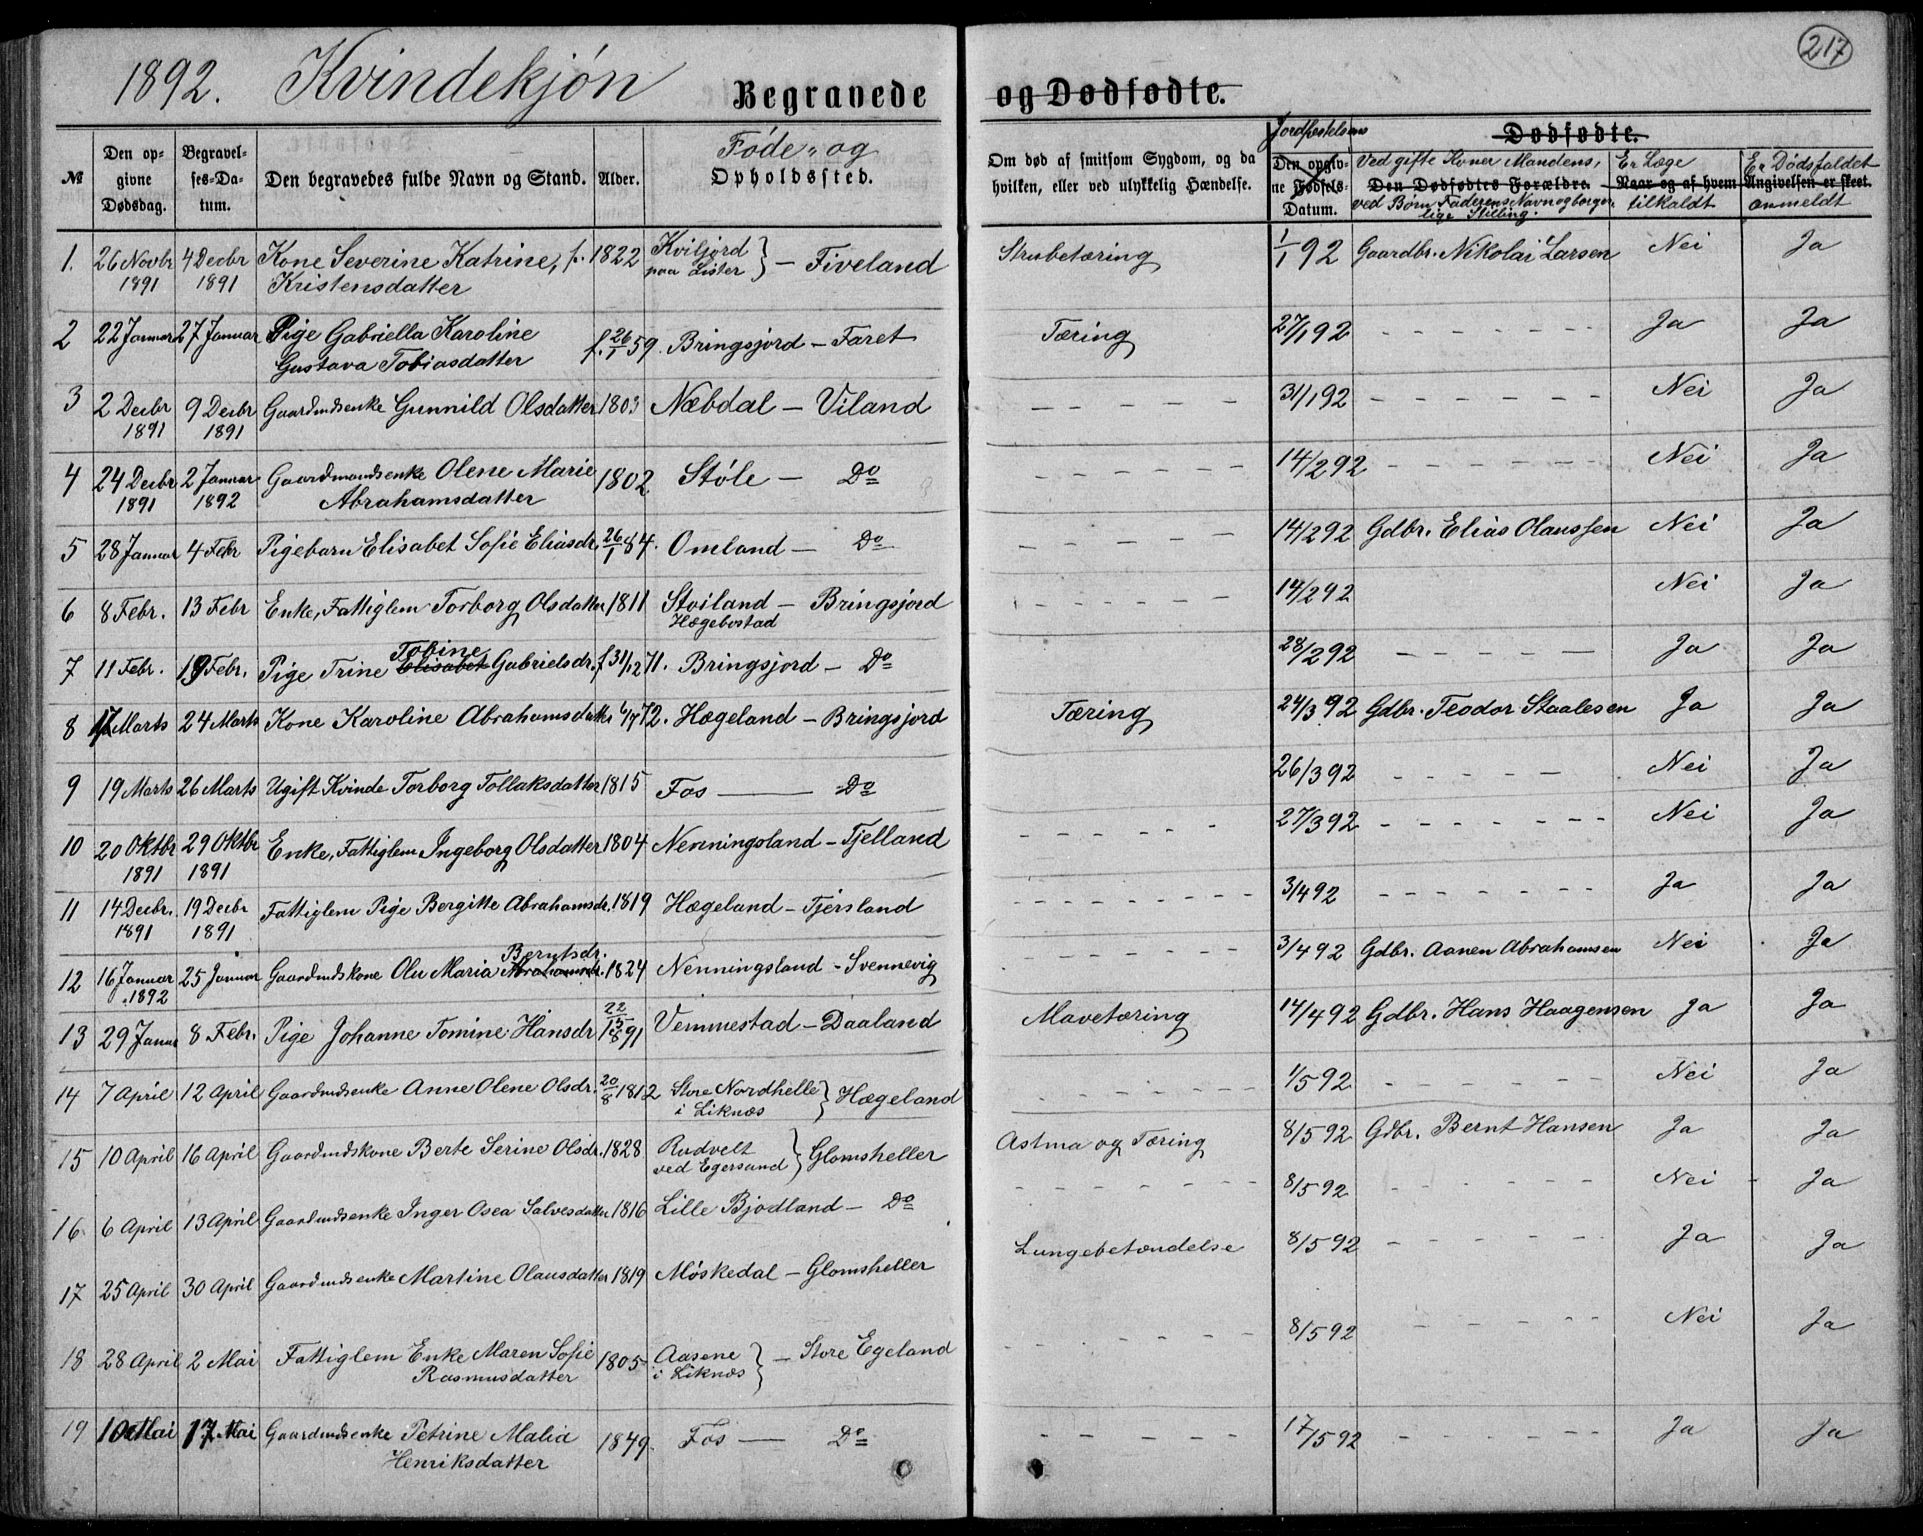 217
1892. Kvindekjón Begravede og Dødfødte.
№
Den opgivne Dødsdag.
Begravelses-Datum.
Den begravedes fulde Navn og Stand.
Alder.
Føde- og Opholdssted.
Om død af smitsom Sygdom, og da hvilken, eller ved ulykkelig Hændelse.
Jordfæstelsens
Den opgivne Fødsels-Datum.
Dødfødte.
Ved gifte Koner Mandens,
Den Dødfødtes Forældre.
ved Børn Faderens Navn og borgerlige Stilling.
Er Læge
Naar og af hvem
tilkaldt
Er Dødsfaldet
Angivelsen er skeet.
anmeldt
1. 26 Novbr 1891 4 Decbr 1891 Kone Severine Katrine, f. Kristensdatter 1822 Kviljord paa Lister } - Fiveland Strubetæring 1/1 92 Gaardbr. Nikolai Larsen Nei Ja
2 22 Januar 27 Januar Pige Gabriella Karoline Gustava Tobiasdatter f. 26/1 59. Bringsjord - Faret Tæring 27/1 92 - - - Ja Ja
3 2 Decbr 1891 9 Decbr 1891 Gaardmdsenke Gunnild Olsdatter 1803 Næbdal - Viland - - - 31/1 92 - - - Nei Ja
4 24 Decbr 1891 2 Januar 1892 Gaardmandsenke Olene Marie Abrahamsdatter 1802 Støle - Do - - - 14/2 92 - - - Nei Ja
5 28 Januar 4 Febr Pigebarn Elisabet Sofie Eliasdr. 26/1 84. Omland - Do - - - 14/2 92 Gdbr. Elias Olaussen Nei Ja
6 8 Febr. 13 Febr Enke, Fattiglem Torborg Olsdatter 1811 Stoiland Hægebostad - Bringsjord - - - 14/2 92 Nei Ja
7 11 Febr. 19 Febr. Pige Trine Elisabet Tobine Gabrielsdr. f 31/12 71. Bringsjord - Do 28/2 92 - - - Ja Ja
8 17 Marts 24 Marts Kone Karoline Abrahamsdatter 6/4 72. Hægeland - Bringsjord Tæring 24/3 92 Gdbr. Teodor Staalesen Ja Ja
9 19 Marts 26 Marts Ugift Kvinde Torborg Tollaksdatter 1815 Fos - Do 26/3 92 - - - Nei Ja
10 20 Oktbr 1891 29 Oktbr 1891 Enke, Fattiglem Ingeborg Olsdatter 1804 Nenningsland - Tjelland - - - 27/3 92 - - - Nei Ja
11 14 Decbr. 1891 19 Decbr 1891 Fattiglem Pige Bergitte Abrahamsdr. 1819 Hægeland - Tjersland - - - 3/4 92 - - - Ja Ja
12 16 Januar 1892 25 Januar Gaardmdskone Olu Maria Abrahamsdr. Berntsdr. 1824 Nenningsland - Svennevig - - - 3/4 92 Gdbr. Aanen Abrahamsen Nei Ja
13 29 Januar 8 Febr. Pige Johanne Tomine Hansdr. 1891 Vemmestad - Daaland Mavetæring 14/4 92 Gdbr. Hans Haagensen Ja Ja
14 7 April 12 April Gaardmdsenke Anne Olene Olsdr. 20/8 1812 Store Nordhelle i Liknæs } Hægeland - - - 1/5 92 - - - Nei Ja
15 10 April 16 April Gaardmdskone Berte Serine Olsdr. 1828 Rudvelt ved Egersund } Glomsheller Astma og Tæring 8/5 92 Gdbr. Bernt Hansen Ja Ja
16 6 April 13 April Gaardmdsenke Inger Osea Salvesdatter 1816 Lille Bjodland - Do - - - 8/5 92 - - - Nei - Ja
17 25 April 30 April Gaardmdsenke Martine Olausdatter 1819 Møskedal - Glomsheller Lungebetændelse 8/5 92 - - - Ja Ja
18 28 April 2 Mai Fattiglem Enke Maren Sofie Rasmusdatter 1805 Aasene i Liknæs } - Store Egeland - - - 8/5 92 - - - Nei Ja
19 10 Mai 17 Mai Gaardmdsenke Petrine Malia Henriksdatter 1849. Fos - Do - - - 17/5 92 - - - Ja Ja